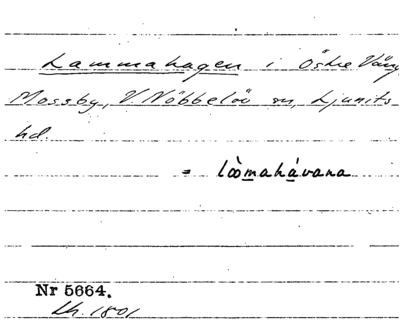 Lammahagen i Östre Väng
Mossby, V. Nöbbelöv sn, Ljunits
hd.
= lòomahávana
Nr 5664.
Lh. 1801